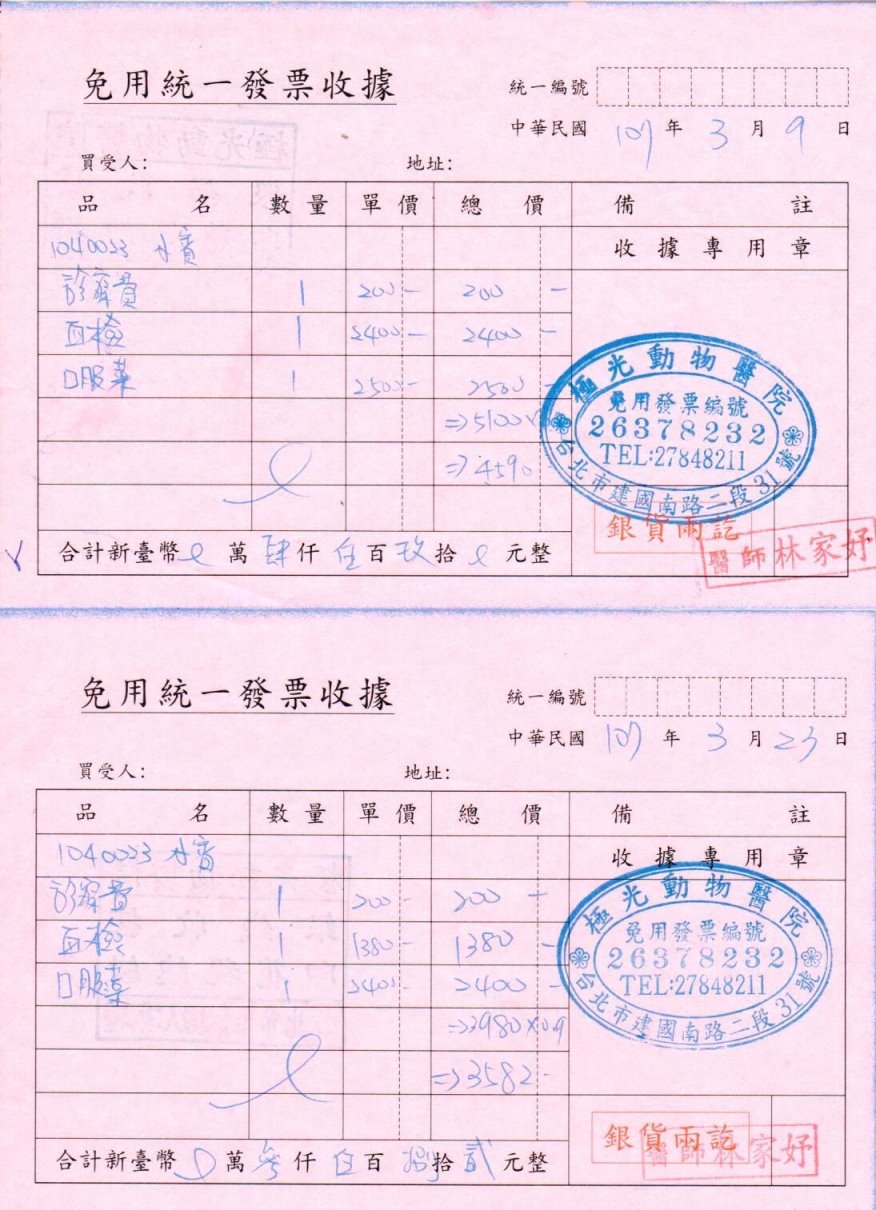 免用統一發票收據
統一編號
中華民國 107 年 3 月 9 日
買受人: 地址:
品名 數量 單價 總價 備註
1040023
收據專用章
診療費 1 200- 200 -
血檢 1 2400- 2400 -
口服藥 1 2500- 2500 -
=>5100
=>4590
極光動物醫院
免用發票編號
26378232
TEL:27848211
台北市建國南路二段31號
銀貨兩訖
醫師林家妤
合計新臺幣 萬 肆仟 伍百 玖拾 元整
免用統一發票收據
統一編號
中華民國 107 年 3 月 23 日
買受人: 地址:
品名 數量 單價 總價 備註
1040023
收據專用章
診療費 1 200- 200 -
血檢 1 1380- 1380 -
口服藥 1 2400- 2400 -
=>3980×0.9
=>3582-
極光動物醫院
免用發票編號
26378232
TEL:27848211
台北市建國南路二段31號
銀貨兩訖
醫師林家妤
合計新臺幣 萬 參仟 伍百 捌拾 貳元整